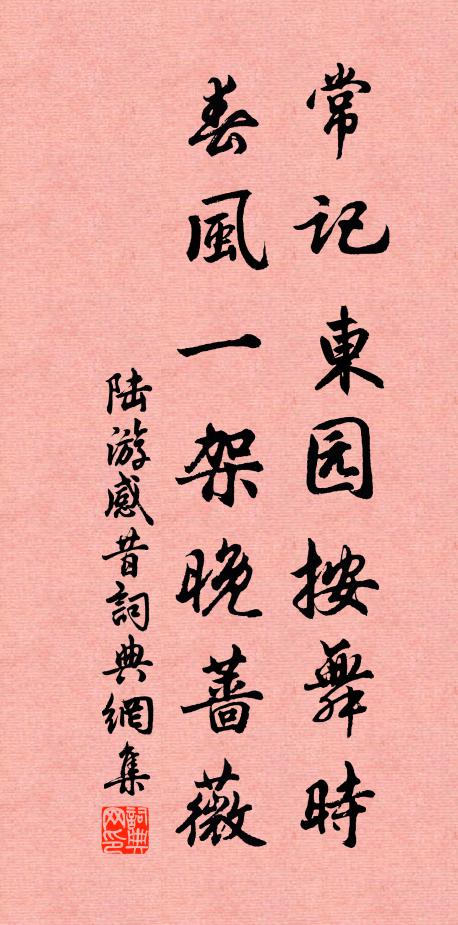 常记東园按舞時
春風一架晚薔薇
陆游感昔詞典網集
詞典网印